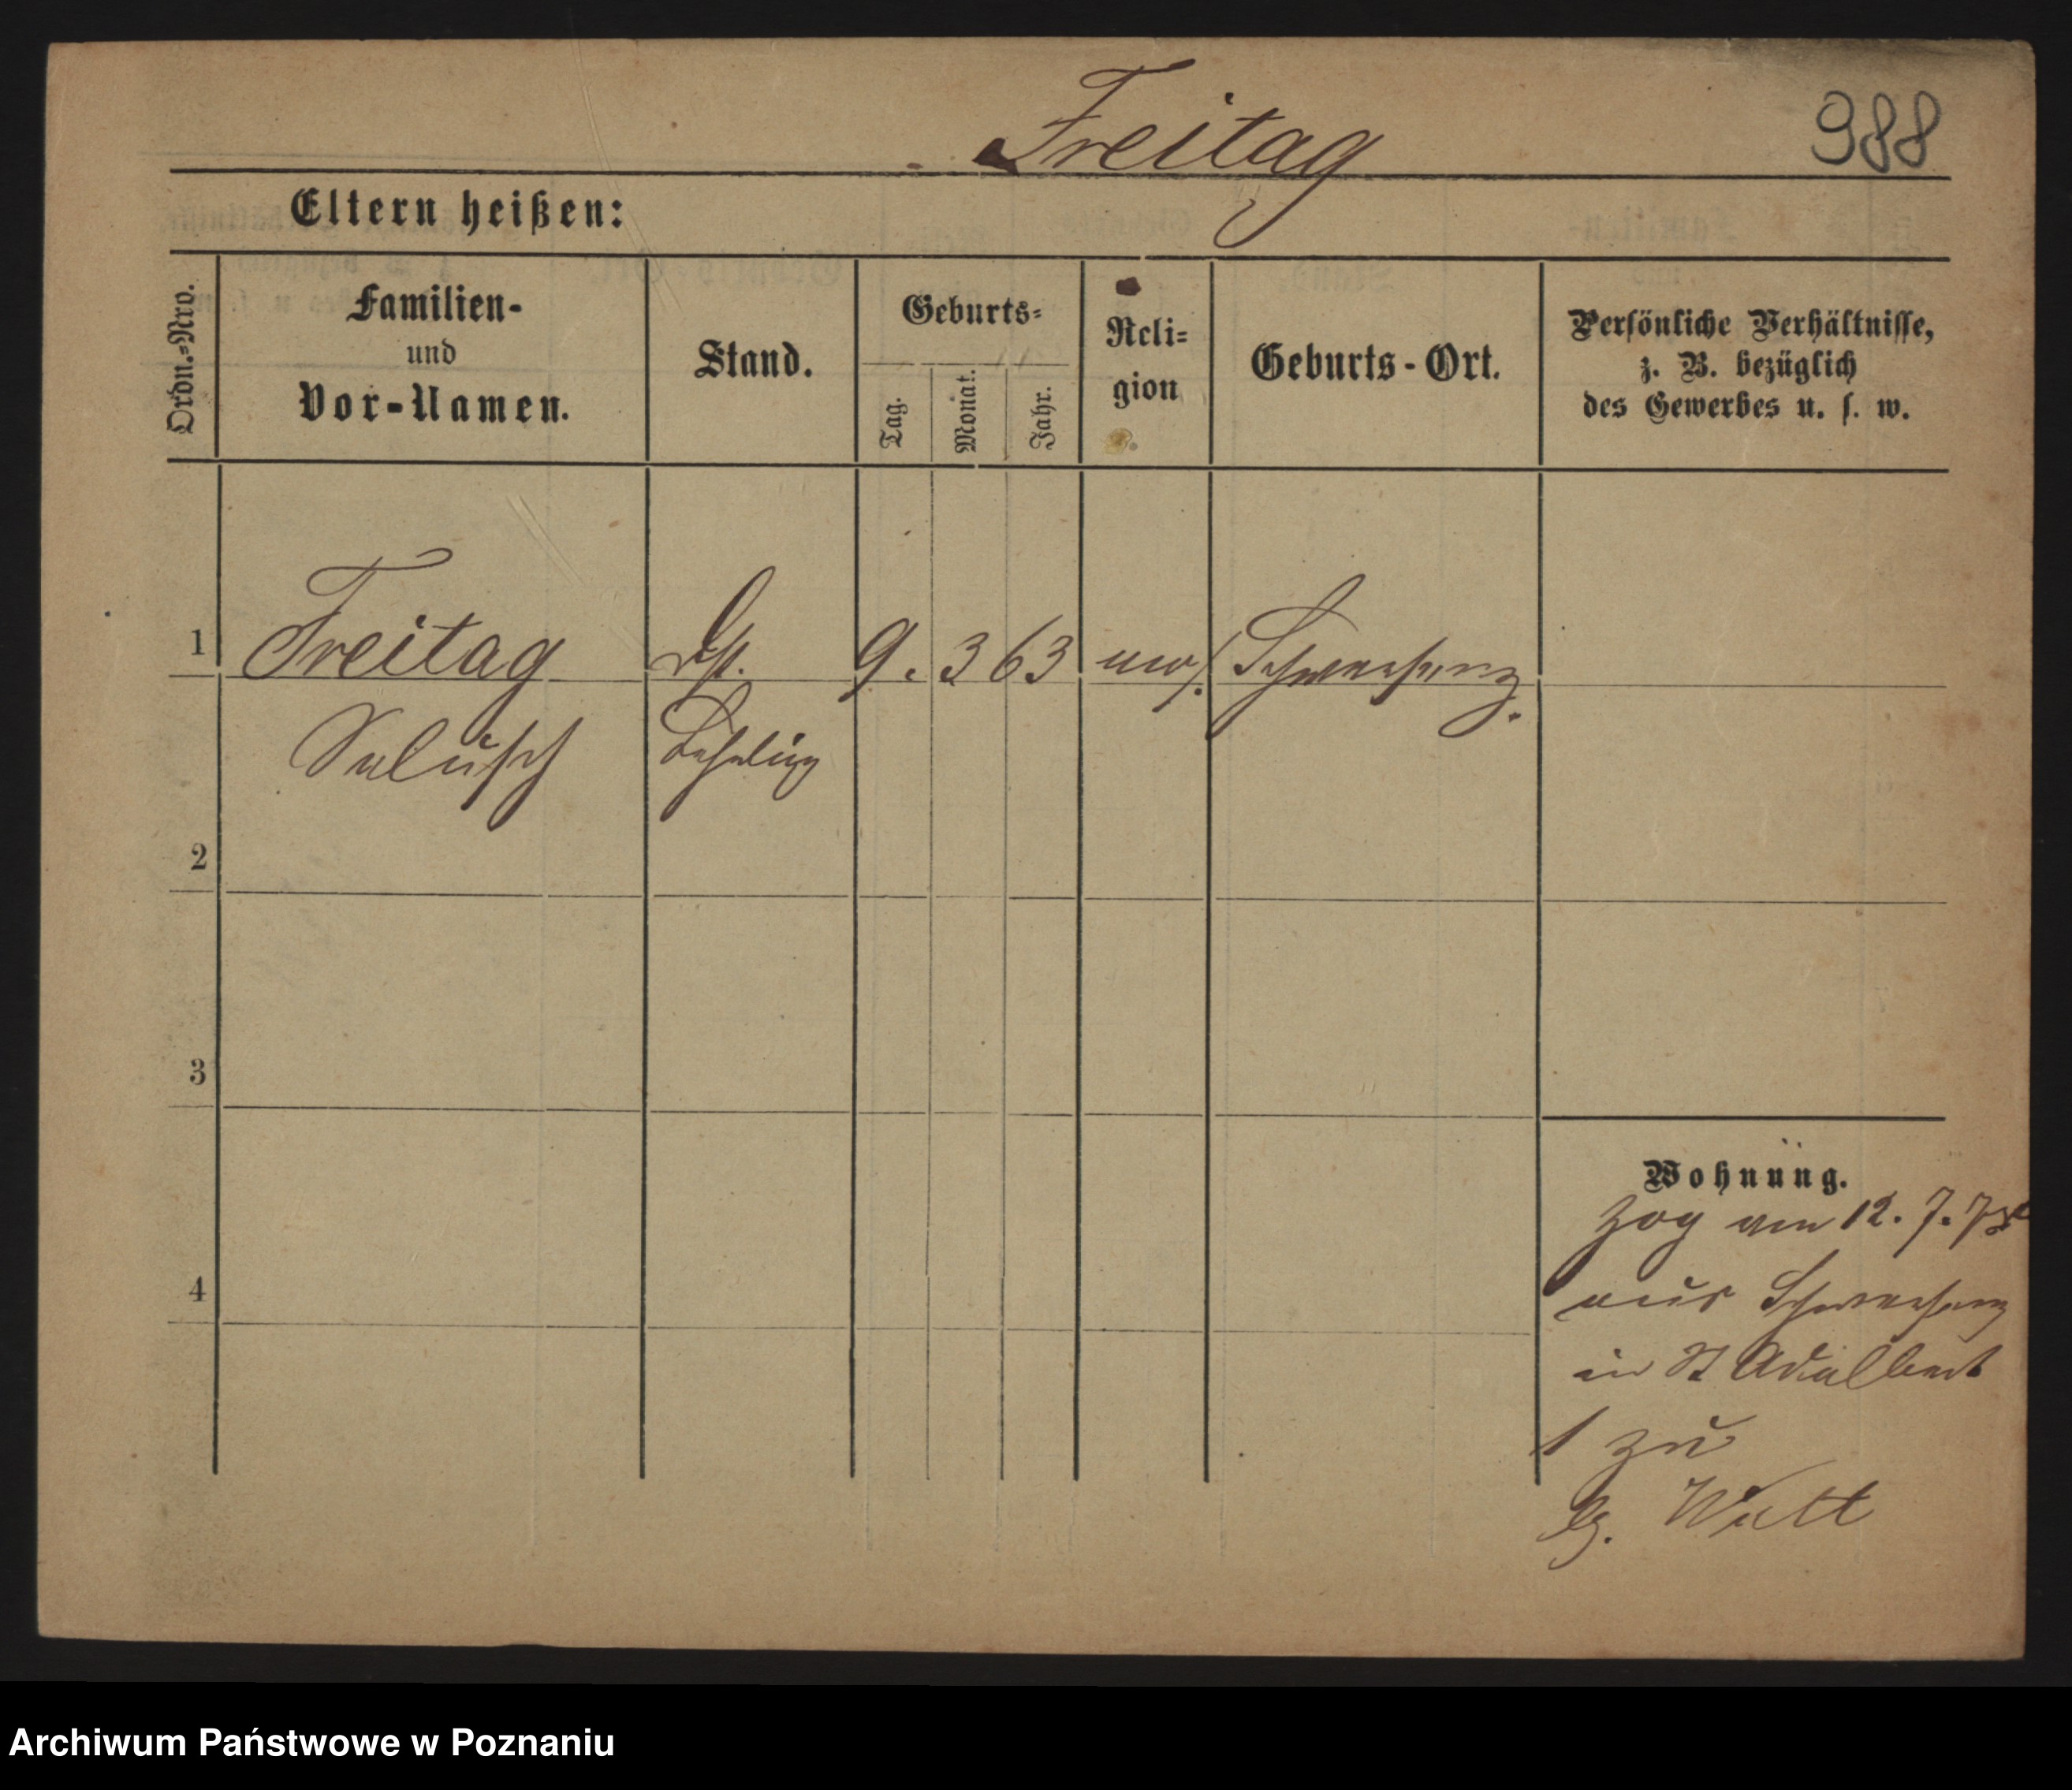 Freitag
988
Eltern heißen:
Ordn.-Nro.
Familien-
und
Vor-Namen.
Stand.
Geburts-
Tag.
Monat.
Jahr.
Reli-
gion
Geburts-Ort.
Persönliche Verhältnisse,
z. B. bezüglich
des Gewerbes u. s. w.
1 Freitag 9. 3 63 mos. Schwersenz.
2
3
4
Wohnung.
Zog am 12. 7.
aus Schwersenz
in St Adalbert
1 zu
Witt
Archiwum Państwowe w Poznaniu